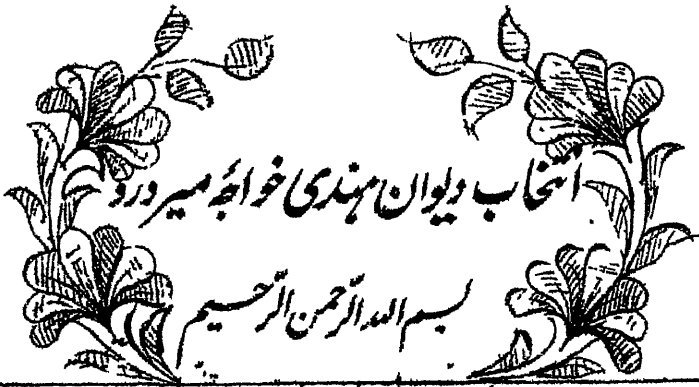 انتخاب دیوان ہندی خواجۂ میر درد
بسم اللہ الرّحمن الرّحیم